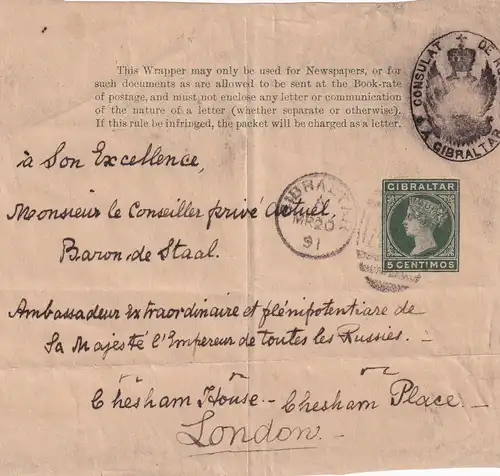 CONSULAT DE
A GIBRALTAR
This Wrapper may only be used for Newspapers, or for
such documents as are allowed to be sent at the Book-rate
of postage, and must not enclose any letter or communication
of the nature of a letter (whether separate or otherwise).
If this rule be infringed, the packet will be charged as a letter.
à Son Excellence,
Monsieur le Conseiller privé Actuel,
Baron de Staal.
GIBRALTAR
MR 20
91
GIBRALTAR
5 CENTIMOS
Ambassadeur Extraordinaire et plénipotentiare de
Sa Majesté l'Empereur de toutes les Russies.
Chesham House - Chesham Place.
London.